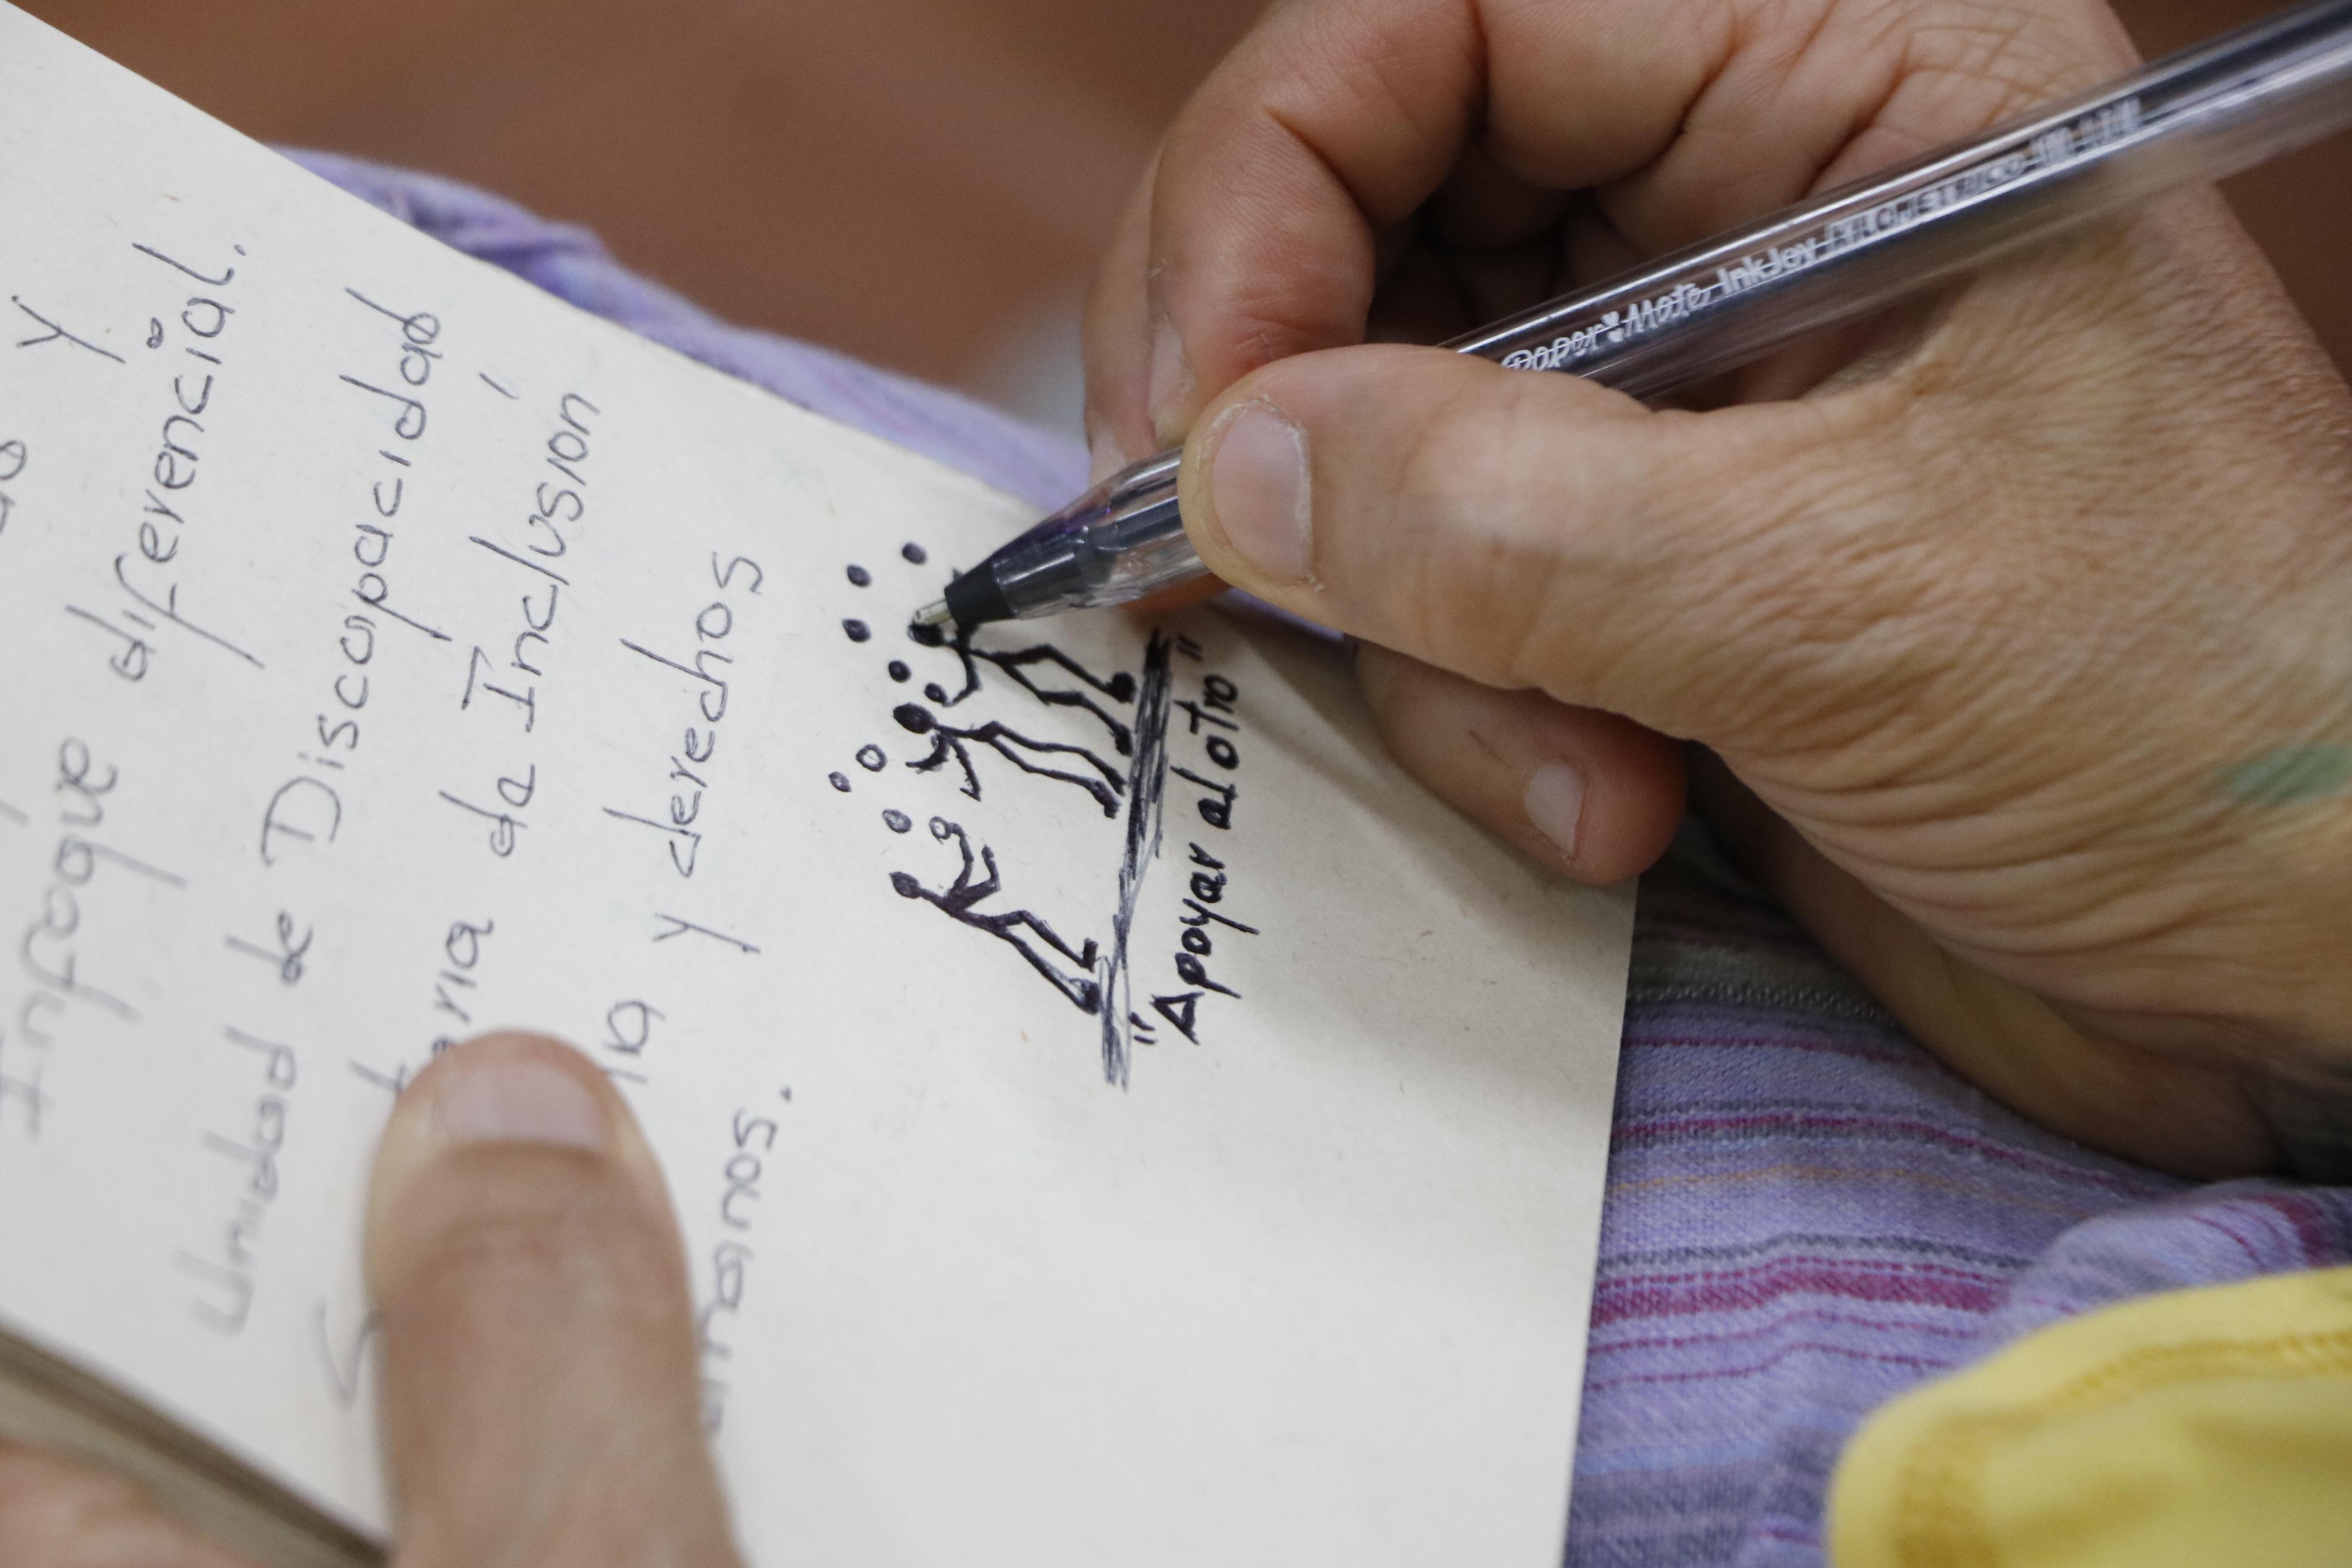 y
Infoque diferencial.
Unidad de Discapacidad
de Inclusión
y derechos
"Apoyar al otro"
Paper Mate InkJoy